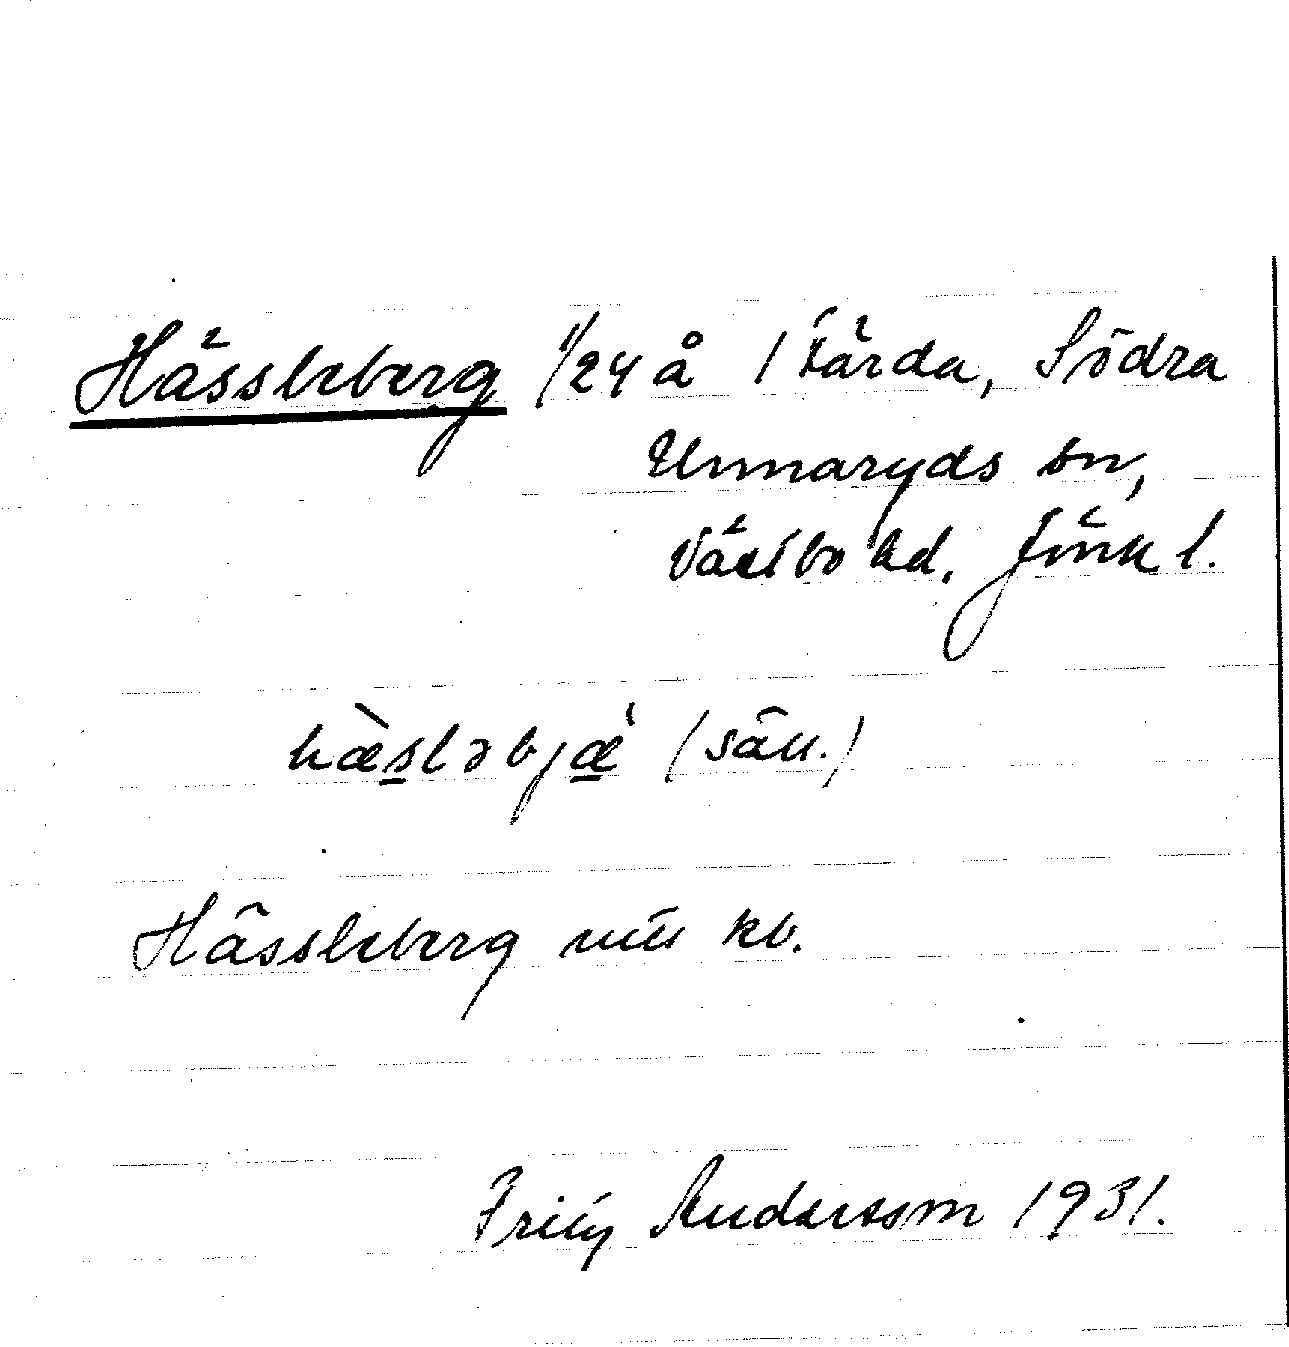 Hässleberg 1/24 å 1 Färda, Södra
Unnaryds sn,
Västbo hd. Jönk l.
hæ̀sləbjæ̀ (säll.)
Hässleberg kb.
Andersson 1931.